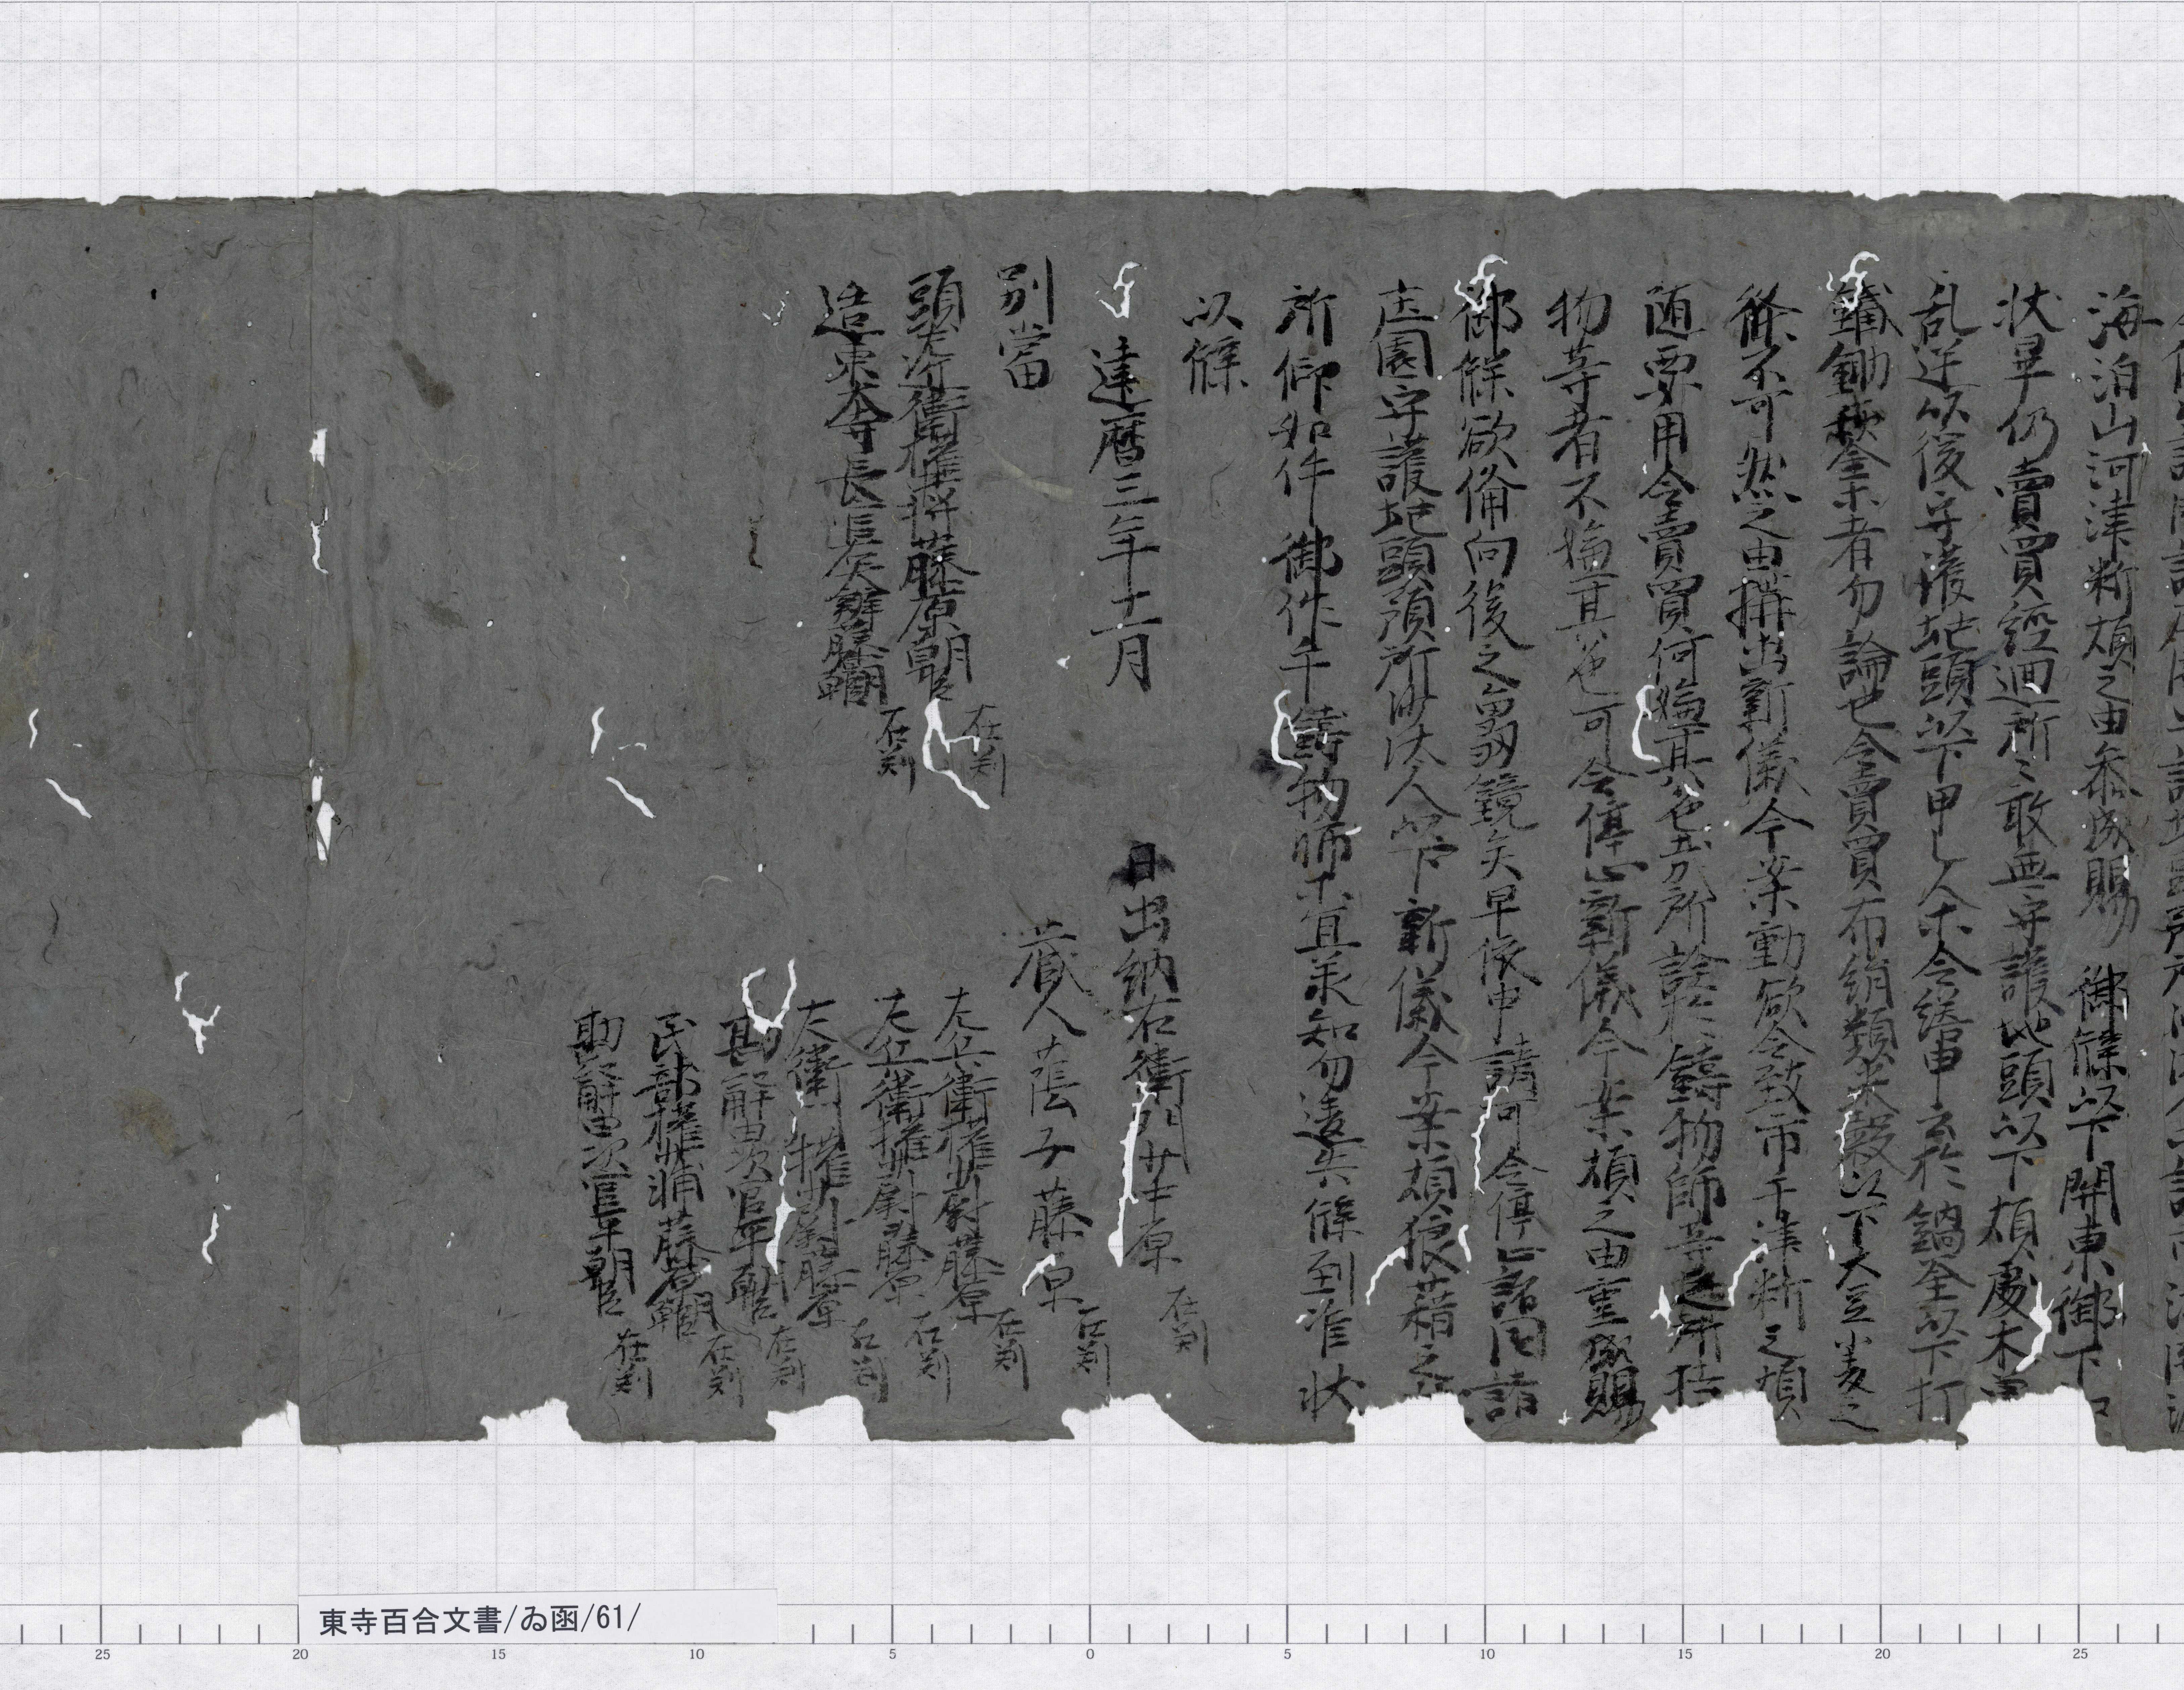 海泊山河津断煩之由忝成賜　御牒以下関東御下
状畢仍賣買経迴所々敢無守護地頭以下煩處
乱逆以後守護地頭以下甲乙人等令結申云於鍋釜以下打
鐵鋤鍬金等者勿論也令賣買布絹類米穀以下大豆小麦之
條不可然之由搆出新儀今案動欲令致市手津断之煩
随要用令賣買何嫌其色哉所詮於鋳物師等之所
物等者不嫌其色可令停止新儀今案煩之由重成賜
御牒欲備向後之龜鏡矣早依申請可令停止諸国諸
庄園守護地頭預所沙汰人以下新儀今案煩狼藉之
所仰如件御作手鋳物師等宜承知勿違失牒到准状
以牒
建暦三年十一月　日出納右衛門　中原　在判
別當　蔵人蔭子藤原　在判
頭左近衛権中将藤原朝臣　在判　左兵衛権少尉藤原　在判
造東大寺長官左大辨藤原朝臣　在判　左兵衛権少尉藤原　在判
左衛門権少尉藤原　在判
勘解由次官平朝臣　在判
民部権少輔藤原朝臣　在判
勘解由次官平朝臣　在判
東寺百合文書/ゐ函/61/
25 20 15 10 5 0 5 10 15 20 25